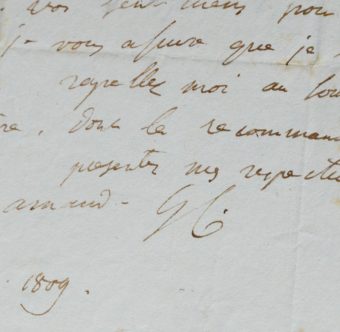 vos sentimens pour
je vous assure que je
rapellez moi au sou
re, dont la recomman
presentez mes respectu
arnaud - G C.
1809.